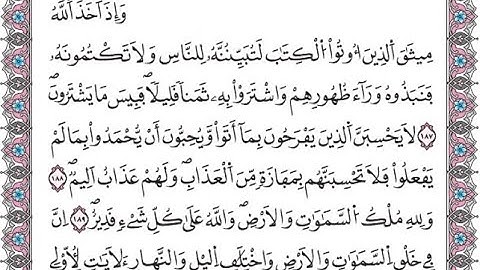 وَإِذَ اَخَذَ اَ۬للَّهُ
مِيثَٰقَ اَ۬لذِينَ أُوتُواْ اُ۬لْكِتَٰبَ لَتُبَيِّنُنَّهُۥ لِلنَّاسِ وَلَا تَكْتُمُونَهُۥ
فَنَبَذُوهُ وَرَآءَ ظُهُورِهِمْ وَاشْتَرَوْاْ بِهِۦ ثَمَناٗ قَلِيلاٗ فَبِيسَ مَا يَشْتَرُونَۖ
١٨٧ لَا يَحْسِبَنَّ اَ۬لذِينَ يَفْرَحُونَ بِمَآ أَتَواْ وَّيُحِبُّونَ أَنْ يُّحْمَدُواْ بِمَا لَمْ
يَفْعَلُواْ فَلَا تَحْسِبَنَّهُم بِمَفَازَةٖ مِّنَ اَ۬لْعَذَابِۖ وَلَهُمْ عَذَابٌ اَلِيمٞۖ ١٨٨
وَلِلهِ مُلْكُ اُ۬لسَّمَٰوَٰتِ وَالَارْضِۖ وَاللَّهُ عَلَىٰ كُلِّ شَےْءٖ قَدِيرٌۖ ١٨٩ اِنَّ
فِے خَلْقِ اِ۬لسَّمَٰوَٰتِ وَالَارْضِ وَاخْتِلَٰفِ اِ۬ليْلِ وَالنَّهارِ ءَلَايَٰتٖ لُِّأوْلِے